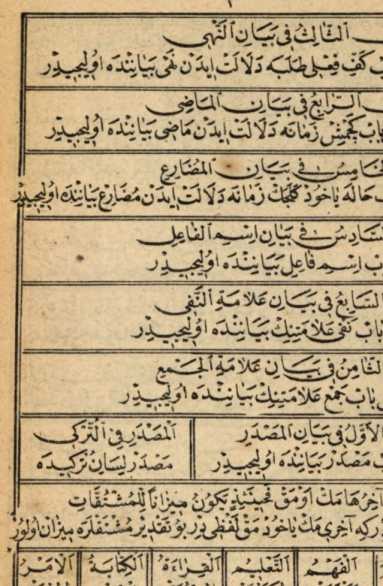 الثالث فى بيان النهى
كف فعلى طلبه دلالت ايدن نهى بياننده اوليجيدر
الرابع فى بيان الماضى
باب كچمش زمانه دلالت ايدن ماضى بياننده اوليجيدر
الخامس فى بيان المضارع
حاله ياخود كله جك زمانه دلالت ايدن مضارع بياننده اوليجيدر
السادس فى بيان اسم الفاعل
باب اسم فاعل بياننده اوليجيدر
السابع فى بيان علامة النفى
باب نفى علامتينك بياننده اوليجيدر
الثامن فى بيان علامة الجمع
باب جمع علامتينك بياننده اوليجيدر
الاول فى بيان المصدر
مصدر بياننده اوليجيدر
المصدر فى التركى
مصدر لسان تركيده
آخرها مك او مق فحينئذ يكون ميزانا للمشتقات
كه آخرى مك ياخود مق لفظى در بو تقديرجه مشتقلره ميزان اولور
الفهم
التعليم
القراءة
الكتابة
الامر